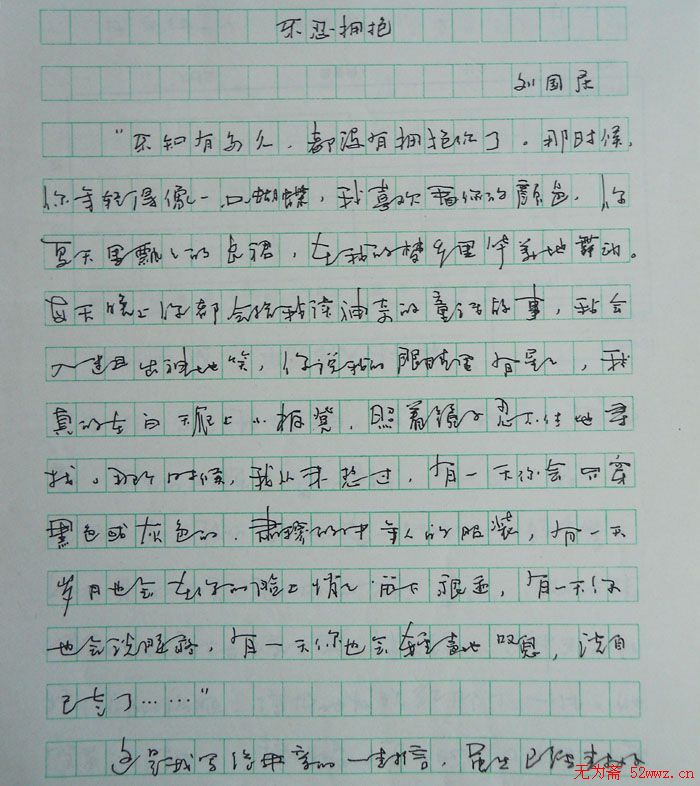 不忍拥抱
刘国
“不知有多久，都没有拥抱你了。那时候，
你年轻得像一只蝴蝶，我喜欢看你的颜色，你
夏天里飘飘的长裙，在我的梦乡里华美地舞动。
每天晚上你都会给我读油亮的童话故事，我会
入迷且出神地笑，你说我的眼睛里有星星，我
真的在白天爬上小板凳，照着镜子忍不住地寻
找。那个时候，我从未想过，有一天你会只穿
黑色或灰色的、肃穆的中年人的服装，有一天
岁月也会在你的脸上悄悄 痕迹，有一天你
也会说腰疼，有一天你也会轻声地叹息，说自
己老了……”
这是我写给母亲的一封信，虽然已经
无为斋 52wwz.cn